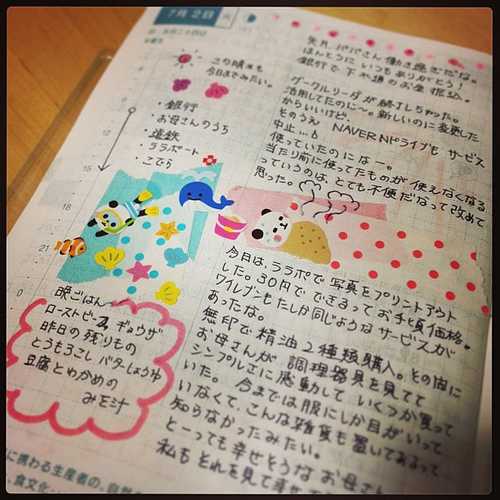 7月2日 火
この晴れも
今日までみたい。
・銀行
・お母さんのうち
・遠鉄
・ララポート
・こでら
21
0
晩ごはん
ローストビーフ、ギョウザ
昨日の残りもの
とうもろこし バターしょうゆ
豆腐とわかめの
みそ汁
先月、パパさん働き過ぎだな。
ほんとうに いつもありがとう!
銀行で
グーグルリーダが 終了しちゃった。
活用してたのに〜。新しいのに変更した
からいいけど。
そのうえ NAVERNドライブも サービス
中止…。
使っていたのになー。
当たり前に使ってたものが 使えなくなる
っていうのは、とても不便だなって改めて
思った。
今日は、ララポで写真をプリントアウト
した。30円で できるってお手頃価格。
ワイレブンもたしか同じようなサービスが
あったな。
無印で精油2種類購入。その間に
お母さんが 調理器具を見てて
シンプルさに感動して いくつか買って
いた。 今までは服にしか目がいって
いなくて、こんな雑貨も置いてあるって
知らなかったみたい。
とーっても幸せそうなお母さん
私もそれを見て幸せ
に携わる生産者の、自然
食文化